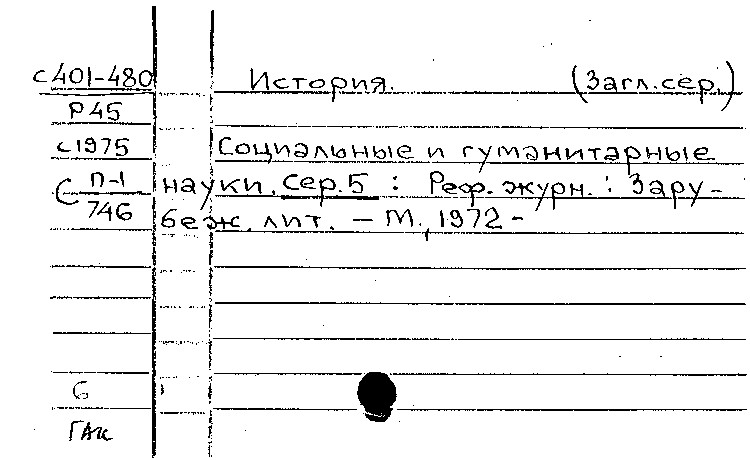 с401-480 История. (Загл.сер.)
Р45
с1975 Социальные и гуманитарные
С П-1/746 науки. Сер.5 : Реф. журн. : Зару-
беж. лит. – М., 1972 -
6